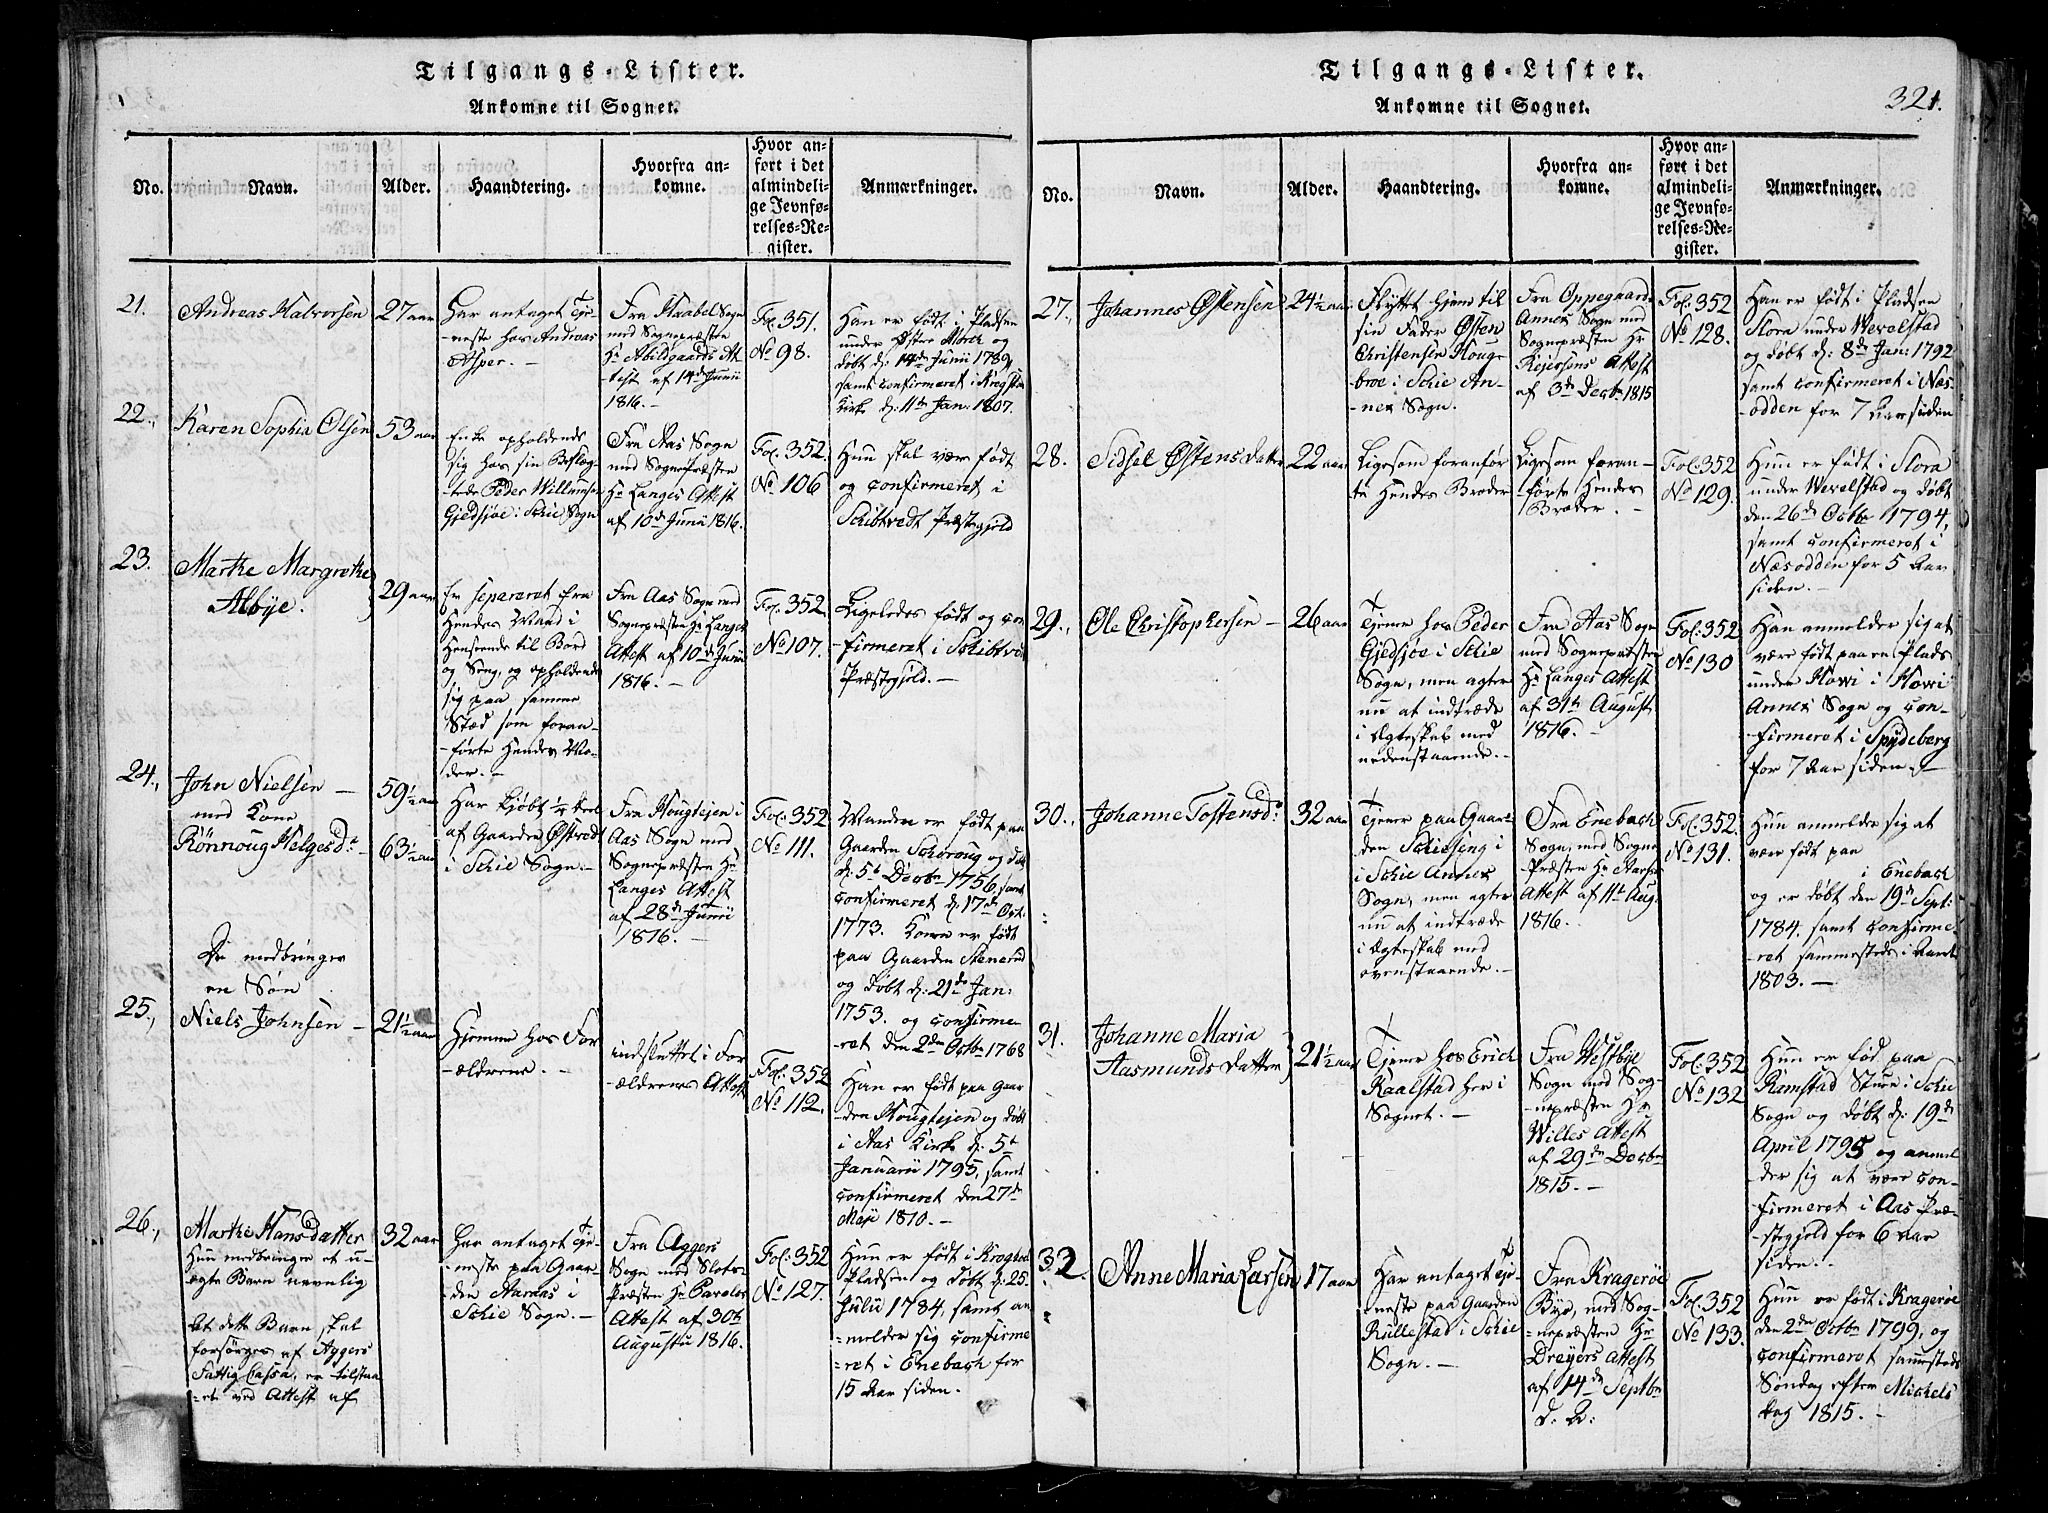 Tilgangs-Lister.
Ankomne til Sognet.
No.
Navn.
Alder.
Haandtering.
Hvorfra an-
komne.
Hvor an-
ført i det
almindeli-
ge Jevnfø-
relses-Re-
gister.
Anmærkninger.
21.
Andreas Halvorsen
27 aar
Har antaget Tje-
neste hos Andreas
Asper. -
Fra Haabel Sogn
med Sognepræsten
Hr Abildgaards At-
test af 14de Junii
1816. -
Fol. 351.
No 98.
Han er født i Pladsen
under Østre
døbt d: 14de Junii 1789,
samt confirmeret i Kregstad
Kirke d: 11te Jan: 1807.
22.,
Karen Sophia Olsen
53 aar
Enke opholdende
sig hos sin Beslæg-
tede Peder Willumsen
Gjedsjøe i Schie Sogn
Fra Aas Sogn
med SognePræsten
Hr Langes Attest
af 10de Junii 1816.
Fol. 352.
No 106
Hun skal være født
og confirmeret i
Schibtvedt Præstegjeld
23.
Marthe Margrethe
Albye.
29 aar
Er separeret fra
Hendes Mand i
Henseende til Bord
og Seng, og opholdende
sig paa samme
Stæd som foran-
-førte Hendes Mo-
der. -
Fra Aas Sogn med
Sognepræsten Hr Langes
Attest af 10de Junii
1816. -
Fol. 352
No 107.
Ligeledes født og con
firmeret i Schibtvet
Præstegjeld. -
24.,
John Nielsen -
med Kone
Rönnoug Helgesdr -
59½ aar
63½ aar
Har kjøbt ¼ Deel
af Gaarden Østvedt
i Schie Sogn. -
Fra Hougtejen i
Aas Sogn med
Sognepræsten Hr
Langes Attest
af 28de Junii
1816. -
Fol. 352
No 111.
Manden er født paa
Gaarden Scheroug og døbt
d: 5te Decbr 1756, samt
confirmeret d: 17de Oct.
1773. Konen er født
paa Gaarden Stenerud
og døbt d: 21de Jan:
1753. og confirme-
ret den 2den Octbr 1768
De medbringer
en Søn
25.,
Niels Johnsen -
21½ aar
Hjemme hos For
-ældrene. -
indsluttet i For
ældrenes Attest
Fol. 352
No 112.
Han er født paa Gaar
-den Hougtejen og døbt
i Aas Kirke d: 5te
Januarii 1795, samt
confirmeret den 27de
Maji 1810. -
26.,
Marthe Hansdatter
Hun medbringer et u-
ægte Barn navnlig
32 aar
Har antaget Tje-
neste paa Gaar-
den Aarnas i
Schie Sogn. -
Fra Aggers
Sogn med Slots-
Præsten Hr Pavels
Attest af 30te
Augustii 1816.
Fol: 352
No 127.
Hun er født i
Pladsen og døbt d: 25
Julii 1784, samt an
-melder sig confirme
-ret i Enebach for
15 Aar siden.
At dette Barn skal
forsørges af Aggers
Fattig Cassa, er tilstaa
-et ved Attest af
Tilgangs-Lister.
Ankomne til Sognet.
321.
No.
Navn.
Alder.
Haandtering.
Hvorfra an-
komne.
Hvor an-
ført i det
almindeli-
ge Jevnfø-
relses-Re-
gister.
Anmærkninger.
27.,
Johannes Østensen
24½ aar
Flyttet hjem til
sin Fader Østen
Christensen Houg-
broe i Schie An-
-nex Sogn.
Fra Oppegaards
Annex Sogn med
Sognepræsten Hr
Kejersens Attest
af 3de Decbr 1815
Fol: 352
No 128.
Han er født i Pladsen
Flora under Wevelstad
og døbt d: 8de Jan: 1792
samt confirmeret i Næs-
-odden for 7 Aar siden
28.
Sidsel Østensdatter
22 aar
Ligesom foranfør
te Hendes Broder
Ligesom foran-
-førte Hendes
Broder. -
Fol: 352
No 129.
Hun er født i Flora
under Wevelstad og døbt
den 26de Octbr 1794,
samt confirmeret i
Næsodden for 5 Aar
siden. -
29.,
Ole Christophersen -
26 aar
Tjener hos Peder
Gjedsjøe i Schie
Sogn, men agter
nu at indtræde
i Ægteskab med
nedenstaaende. -
Fra Aas Sogn
med Sognepræsten
Hr Langes Attest
af 31te August
1816. -
Fol. 352
No 130
Han anmelder sig at
være født paa en Plads
under Howi i Howi
Annex Sogn og con-
-firmeret i Spydeberg
for 7 Aar siden. -
30.,
Johanne Tostensdr
32 aar
Tjener paa Gaar
den Schieseng i
Schie Annex
Sogn, men agter
nu at indtræde
i Ægteskab med
ovenstaaende. -
Fra Enebach
Sogn, med Sogne
Præsten Hr
Attest af 11te Aug.
1816.
Fol. 352.
No 131.
Hun anmelder sig at
være født paa
i Enebach
og er døbt den 19de Sept:
1784. samt confirme-
-ret sammesteds i Aaret
1803. -
31.
Johanne Maria
Aasmundsdatter
21½ aar
Tjener hos Erich
Kaalstad her i
Sognet. -
Fra Westbye
Sogn med Sog-
-nepræsten Hr
Willes Attest
af 29de Decbr
1815. -
Fol. 352
No 132
Hun er fød paa
Ramstad Sture i Schie
Sogn og døbt d: 19de
April 1795 og anmel
der sig at være con-
firmeret i Aas Præ-
-stegjeld for 6 Aar
siden. -
32.
Anne Maria Larsen
17 aar
Har antaget Tje-
neste paa Gaarden
Rullestad i Schie
Sogn. -
Fra Kragerøe
Bye, med Sog-
-nepræsten Hr
Dreyers Attest
af 14de Septbr
d. A:
Fol. 352
No 133.
Hun er født i Kragerøe
den 2den Octbr 1799, og
confirmeret sammesteds
Søndag efter Michels
dag 1815. -